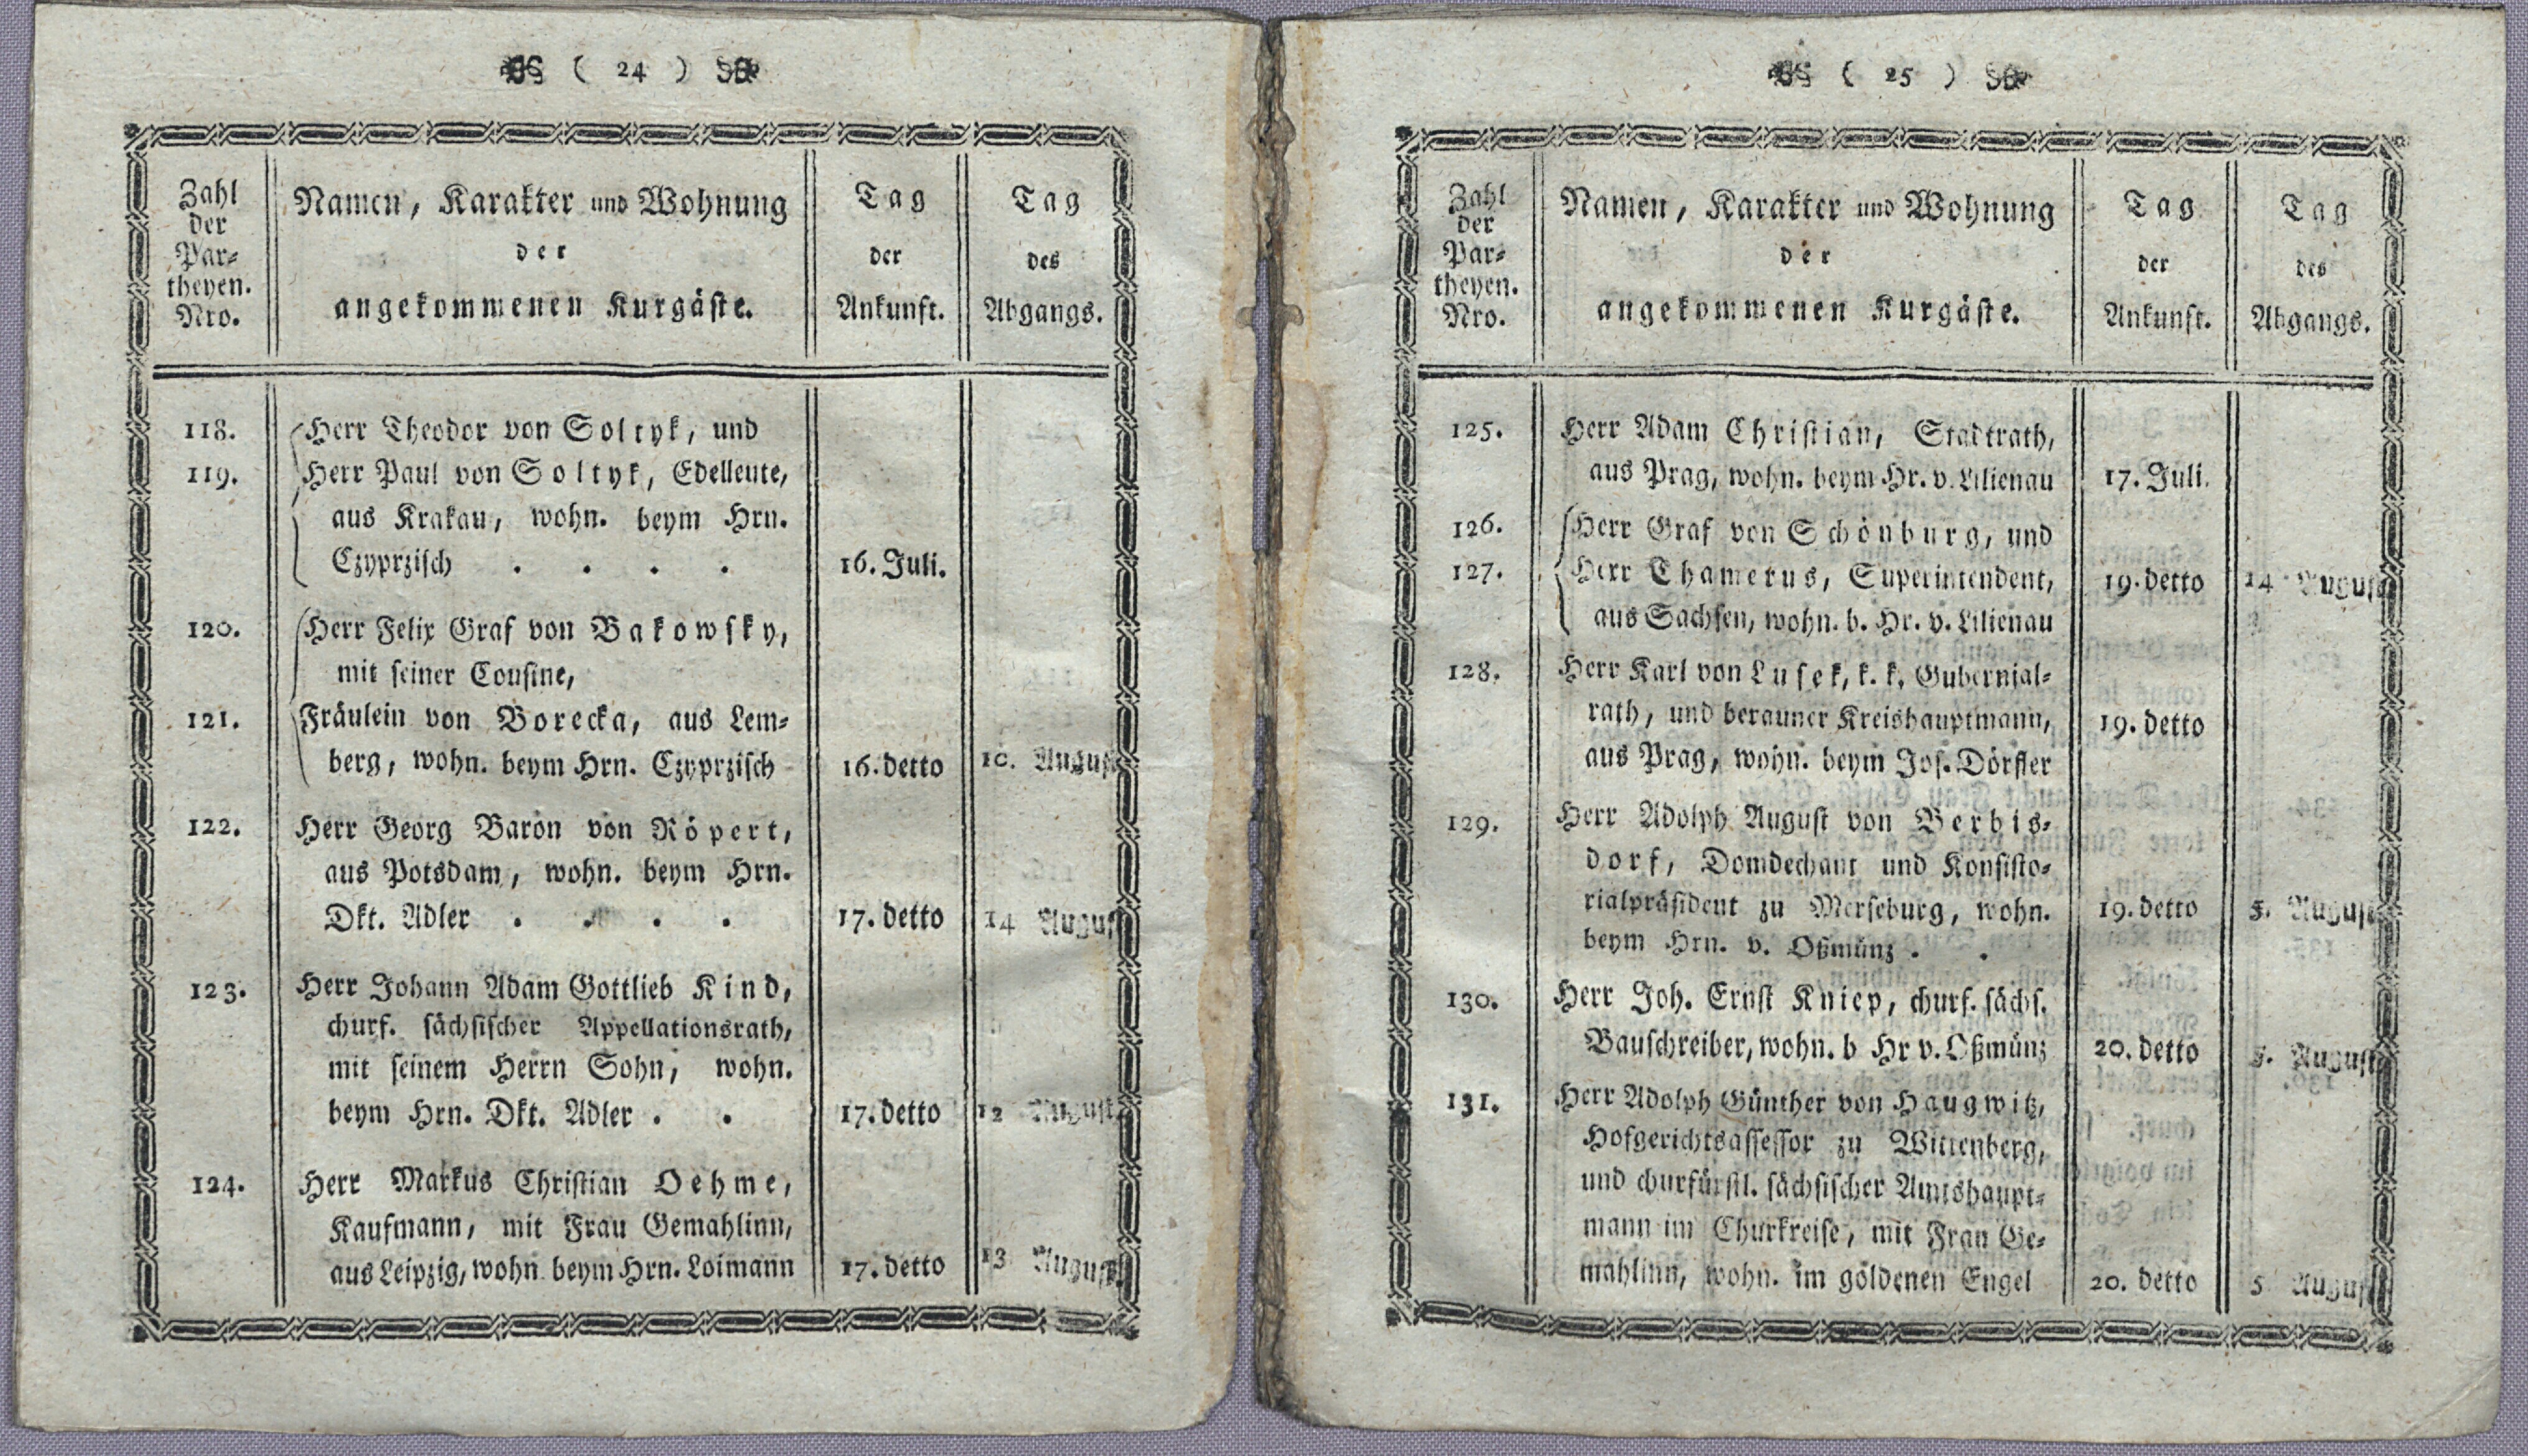 ( 24 )
Zahl
der
Par-
theyen.
Nro.
Namen, Karakter und Wohnung
der
angekommenen Kurgäste.
Tag
der
Ankunft.
Tag
des
Abgangs.
118. Herr Theodor von Soltyk, und
119. Herr Paul von Soltyk, Edelleute,
aus Krakau, wohn. beym Hrn.
Czyprzisch . . . . 16. Juli.
120. Herr Felix Graf von Bakowsky,
mit seiner Cousine,
121. Fräulein von Borecka, aus Lem-
berg, wohn. beym Hrn. Czyprzisch 16. detto 10. August
122. Herr Georg Baron von Röpert,
aus Potsdam, wohn. beym Hrn.
Dkt. Adler . . . . 17. detto 14 August
123. Herr Johann Adam Gottlieb Kind,
churf. sächsischer Appellationsrath,
mit seinem Herrn Sohn, wohn.
beym Hrn. Dkt. Adler . . 17. detto 12 August
124. Herr Markus Christian Oehme,
Kaufmann, mit Frau Gemahlinn,
aus Leipzig, wohn. beym Hrn. Loimann 17. detto 13 August.
( 25 )
Zahl
der
Par-
theyen.
Nro.
Namen, Karakter und Wohnung
der
angekommenen Kurgäste.
Tag
der
Ankunft.
Tag
des
Abgangs.
125. Herr Adam Christian, Stadtrath,
aus Prag, wohn. beym Hr. v. Lilienau 17. Juli.
126. Herr Graf von Schönburg, und
127. Herr Thamerus, Superintendent, 19. detto 14 August
aus Sachsen, wohn. b. Hr. v. Lilienau
128. Herr Karl von Lusek, k. k. Gubernial-
rath, und berauner Kreishauptmann, 19. detto
aus Prag, wohn. beym Jos. Dörfler
129. Herr Adolph August von Berbis-
dorf, Domdechant und Konsisto-
rialpräsident zu Merseburg, wohn. 19. detto 5. August
beym Hrn. v. Oßmünz . .
130. Herr Joh. Ernst Kniep, churf. sächs.
Bauschreiber, wohn. b Hr v. Oßmünz 20. detto 5. August
131. Herr Adolph Günther von Haugwitz,
Hofgerichtsassessor zu Wittenberg,
und churfürstl. sächsischer Amtshaupt-
mann im Churkreise, mit Frau Ge-
mahlinn, wohn. im goldenen Engel 20. detto 5 August